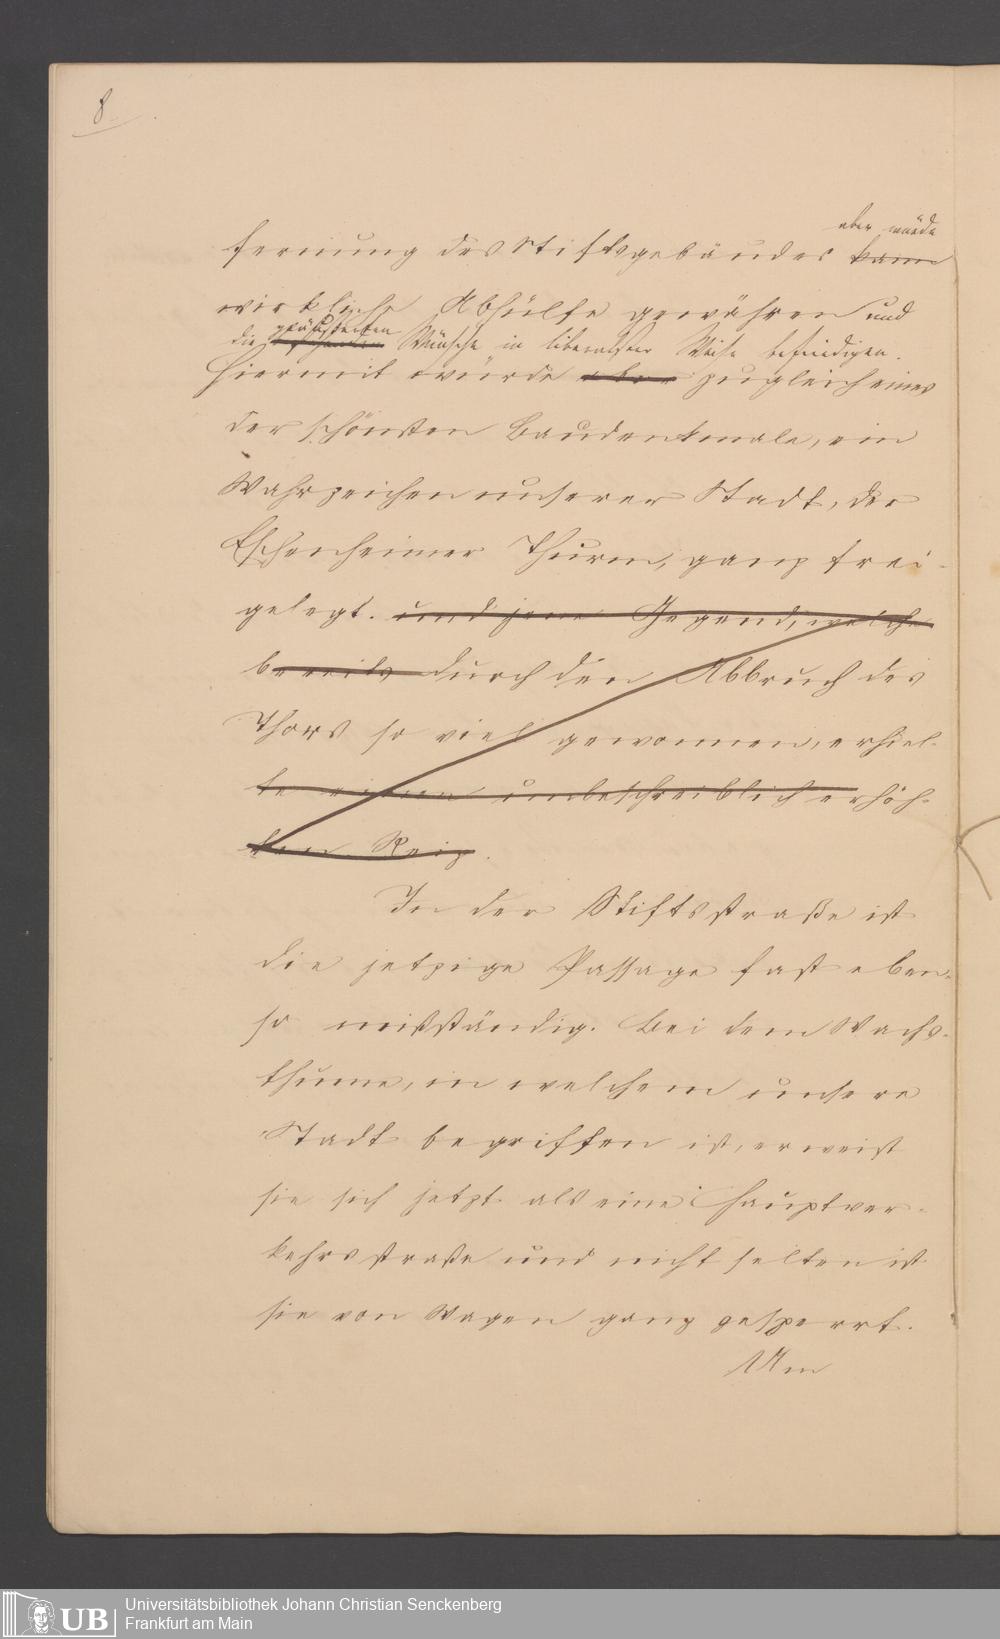 8
aber würde
fernung des Stiftsgebäudes kann
wirkliche Abhülfe gewähren und
geäußerten
die Wünsche in liberalster Weise befriedigen.
Hiermit würde aber zugleich eines
der schönsten Baudenkmale, ein
Wahrzeichen unserer Stadt, der
Eschenheimer Thurm, ganz frei-
gelegt. und jene Gegend, welche
bereits durch den Abbruch des
Thors so viel gewonnen, erhiel-
te einen unbeschreiblich erhöh-
ten Reiz.
In der Stiftsstraße ist
die jetzige Passage fast eben-
so mißständig. Bei dem Wachs-
thume, in welchem unsere
Stadt begriffen ist, erweist
sie sich jetzt als eine Hauptver-
kehrsstraße und nicht selten ist
sie von Wagen ganz gesperrt.
Um
UB
Universitätsbibliothek Johann Christian Senckenberg
Frankfurt am Main